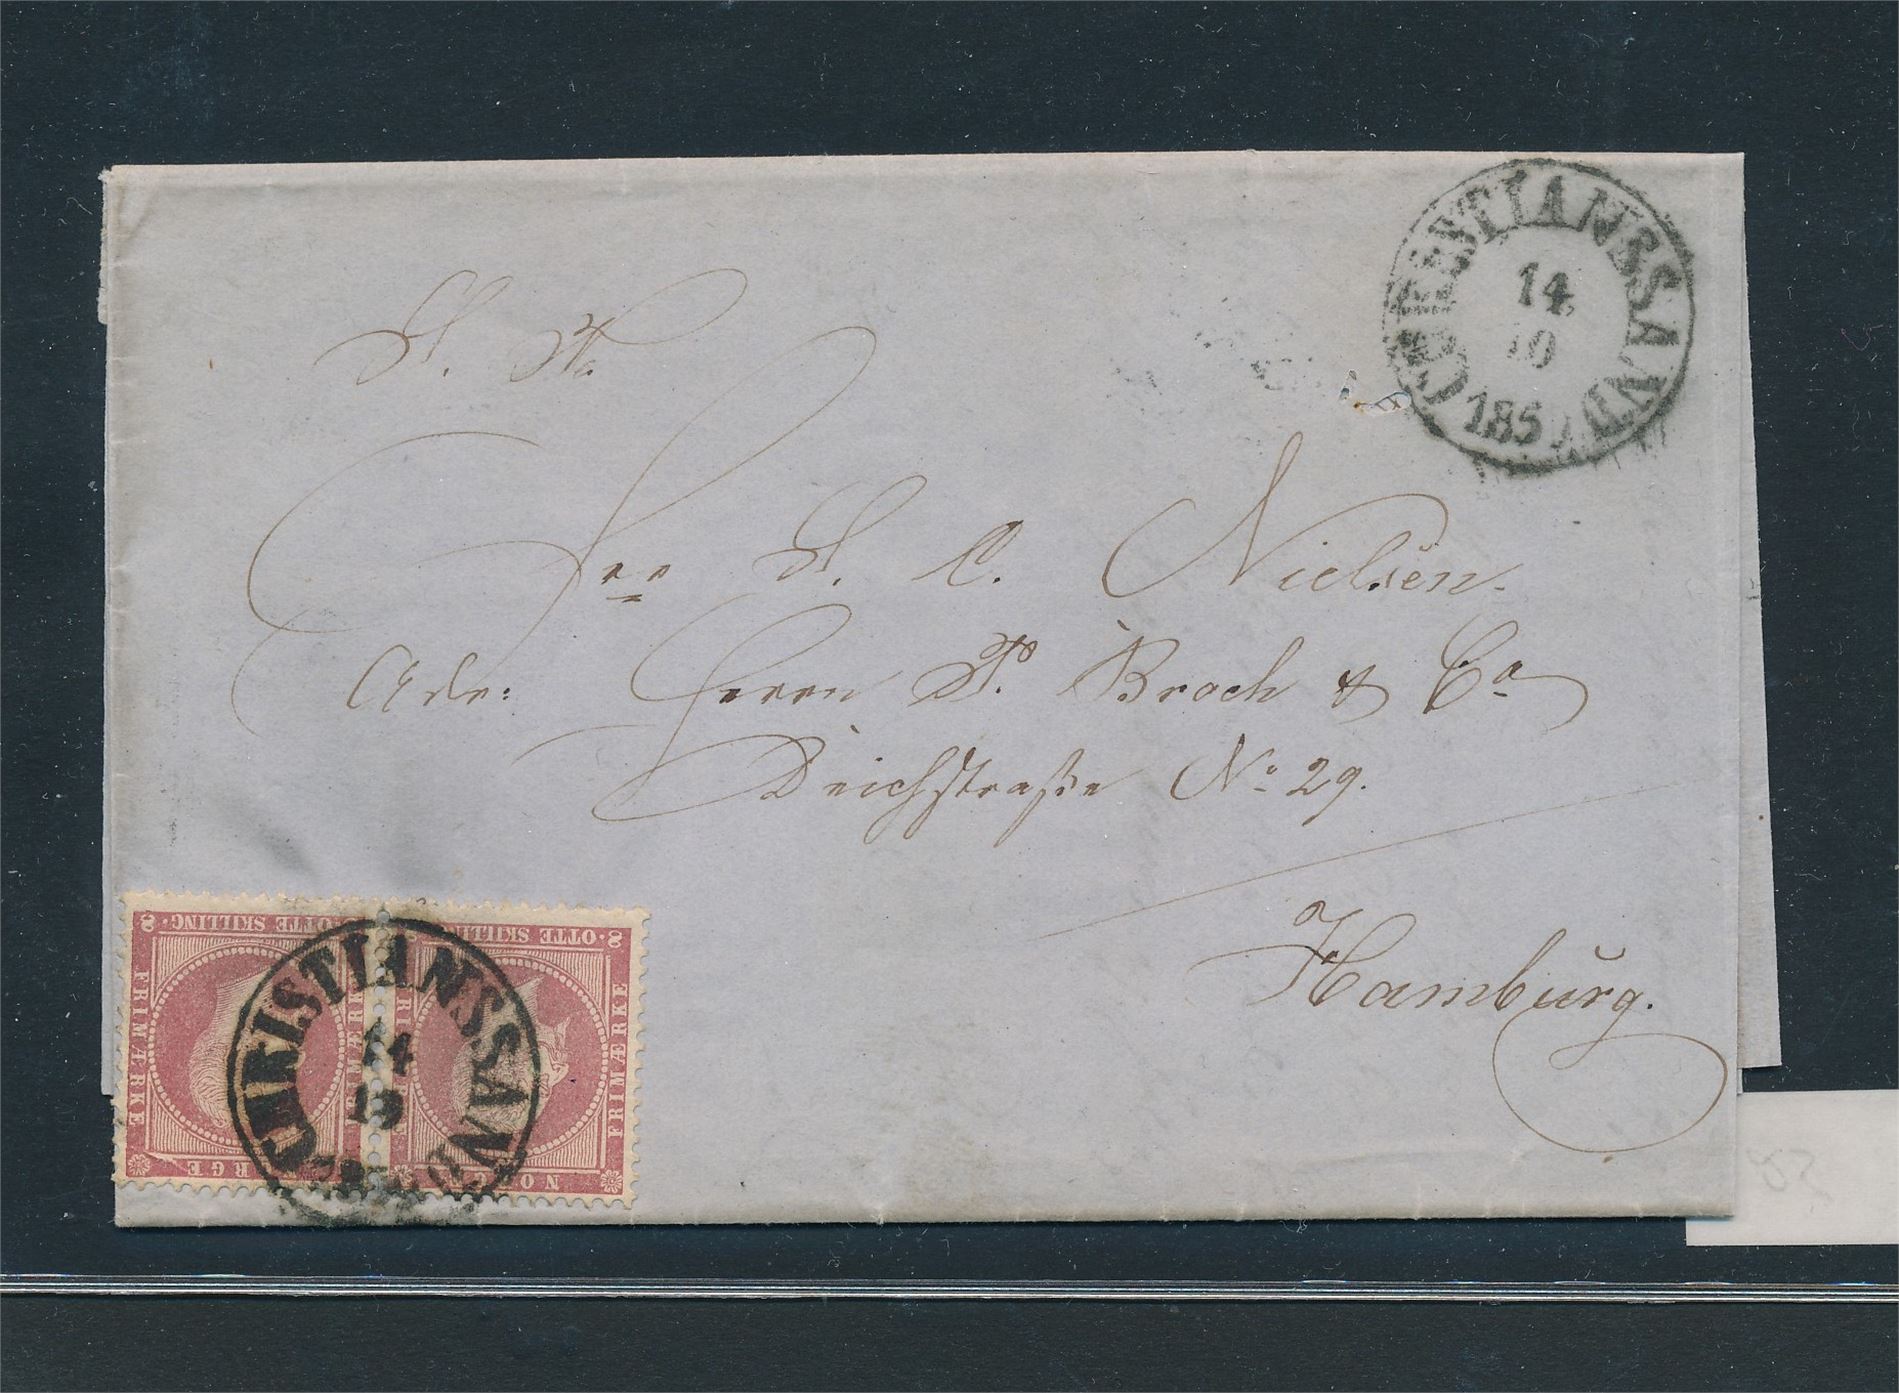 CHRISTIANSSAND
14
10
185
S. T.
Herr S. C. Nielsen.
Adr: Herrn P. Broch & Co
Deichstraße No 29.
Hamburg.
8 · OTTE SKILLING · OTTE SKILLING · 8
FRIMÆRKE FRIMÆRKE
NORGE
CHRISTIANSSAND
14
10